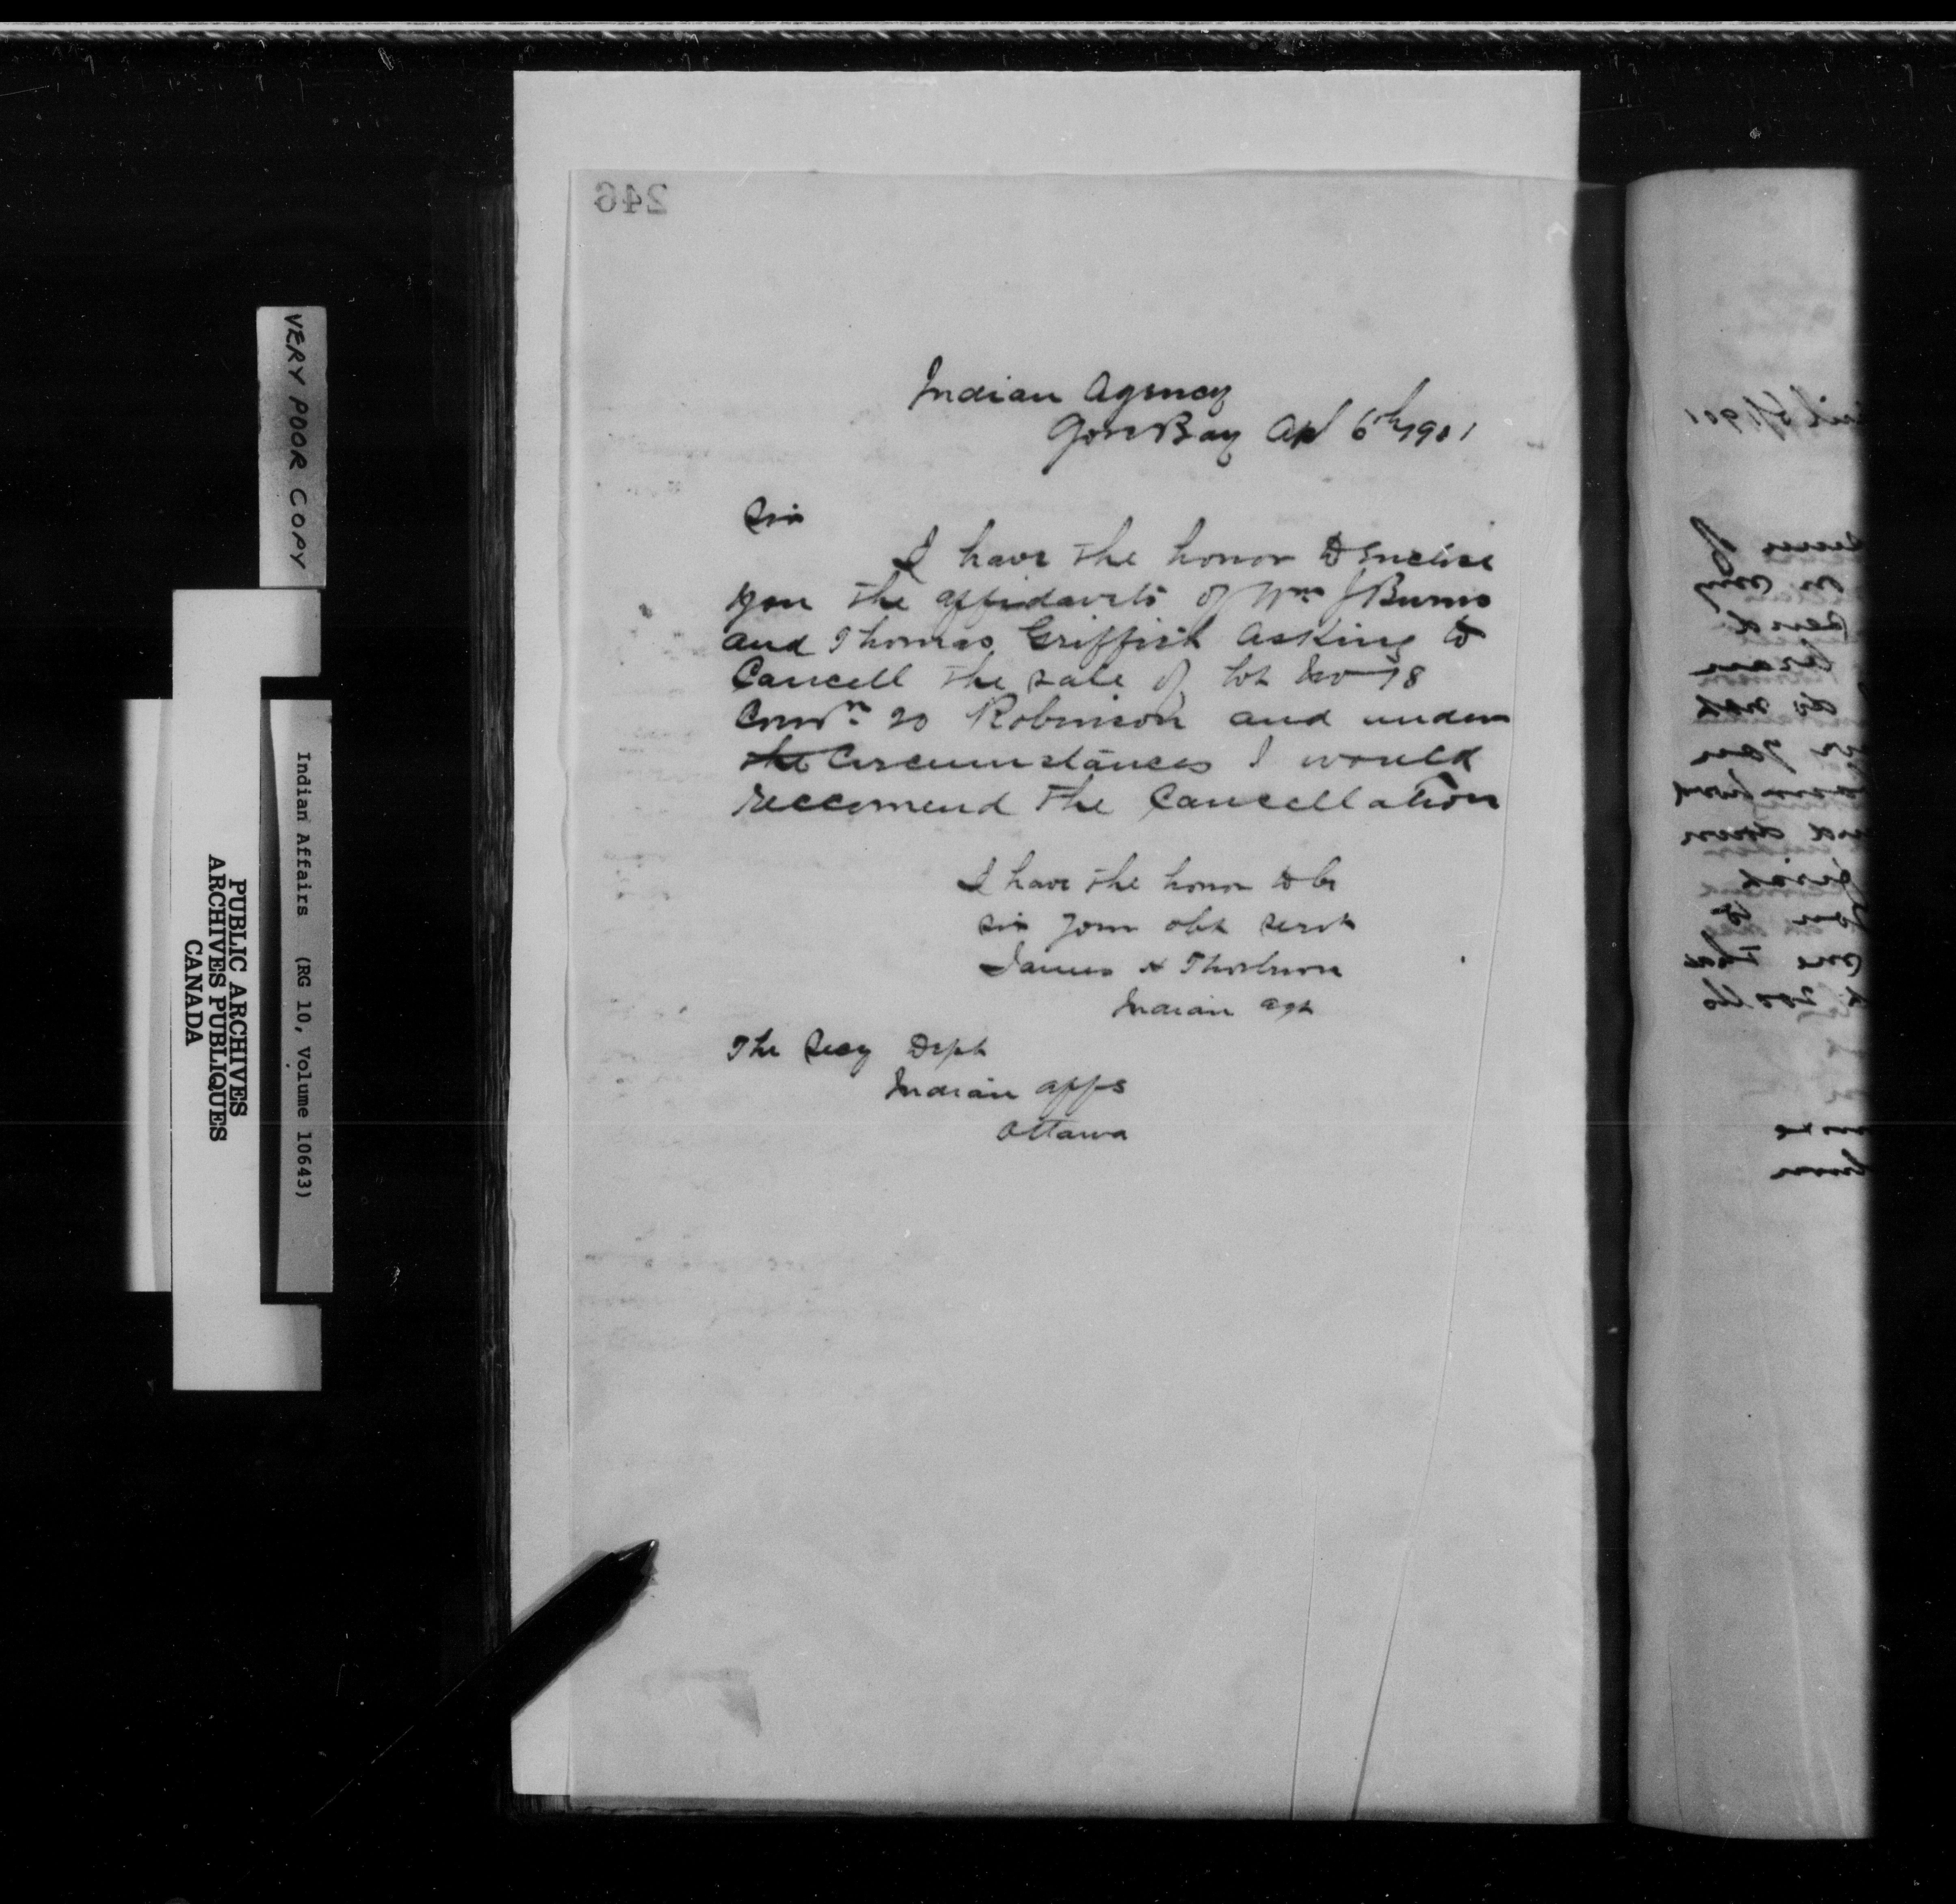 246
Indian Agency
Gore Bay Apl 6th 1901
Sir
I have the honor to Enclose
you the affidavits of Wm J Burns
and Thomas Griffith asking to
Cancell the sale of Lot No 18
Conn 20 Robinson and under
the Circumstances I would
reccomend the Cancellation
I have the honor to be
sir your obt servt
James H Thorburn
Indian agt
The Secy Dept
Indian affs
Ottawa
VERY POOR COPY
Indian Affairs (RG 10, Volume 10643)
PUBLIC ARCHIVES
ARCHIVES PUBLIQUES
CANADA